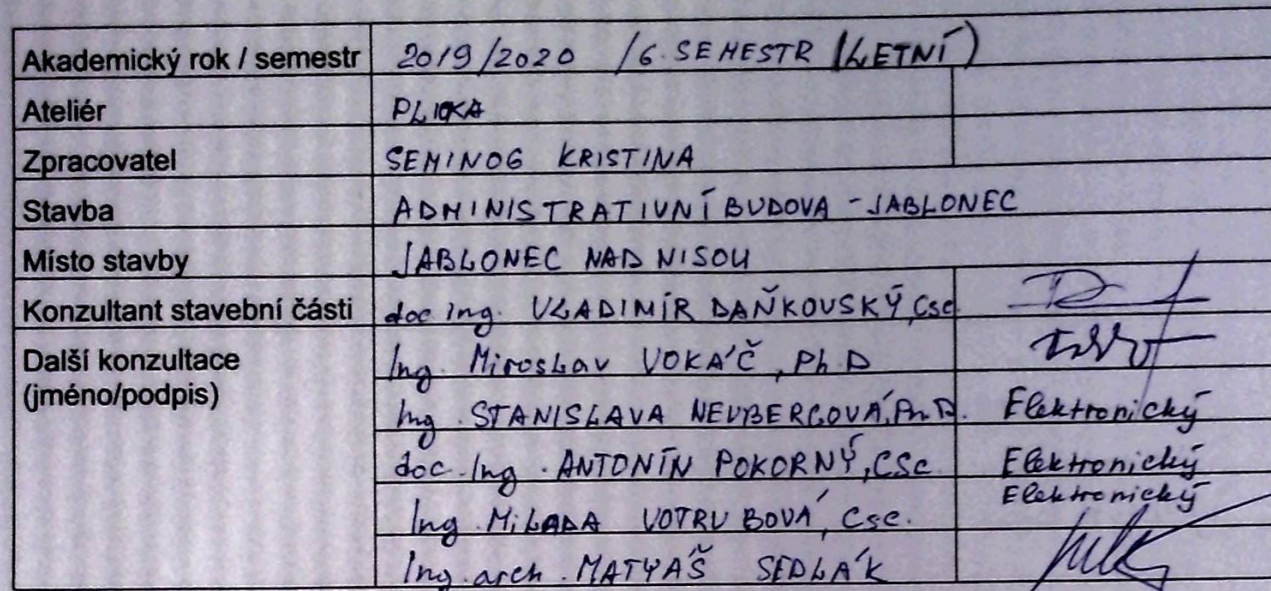 Akademický rok / semestr 2019/2020 /6. SEMESTR (LETNÍ)
Ateliér PLICKA
Zpracovatel SEMINOG KRISTINA
Stavba ADMINISTRATIVNÍ BUDOVA - JABLONEC
Místo stavby JABLONEC NAD NISOU
Konzultant stavební části doc ing. VLADIMÍR DAŇKOVSKÝ, CSc
Další konzultace Ing. Miroslav VOKÁČ, Ph.D
(jméno/podpis)
Ing. STANISLAVA NEUBERGOVÁ, Ph.D. Elektronický
doc. Ing. ANTONÍN POKORNÝ, CSc Elektronický
Ing. MILADA VOTRUBOVÁ, CSc. Elektronický
Ing. arch. MATYÁŠ SEDLÁK